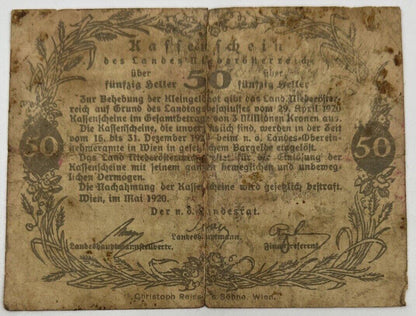 Kassenschein
des Landes Niederösterreich
über 50 über
fünfzig Heller fünfzig Heller
Zur Behebung der Kleingeldnot gibt das Land Niederöster-
reich auf Grund des Landtagsbeschlusses vom 29. April 1920
Kassenscheine im Gesamtbetrage von 3 Millionen Kronen aus.
Die Kassenscheine, die unverzinslich sind, werden in der Zeit
vom 15. bis 31. Dezember 1920 beim n. ö. Landes-Oberein-
nehmeramte in Wien in gesetzlichem Bargelde eingelöst.
Das Land Niederösterreich haftet für die Einlösung der
Kassenscheine mit seinem ganzen beweglichen und unbeweg-
lichen Vermögen.
50 50
Die Nachahmung der Kassenscheine wird gesetzlich bestraft.
Wien, im Mai 1920.
Der n. ö. Landesrat.
Landeshauptmannstellverte. Landeshauptmann. Finanzreferent.
Christoph Reisser's Söhne, Wien.